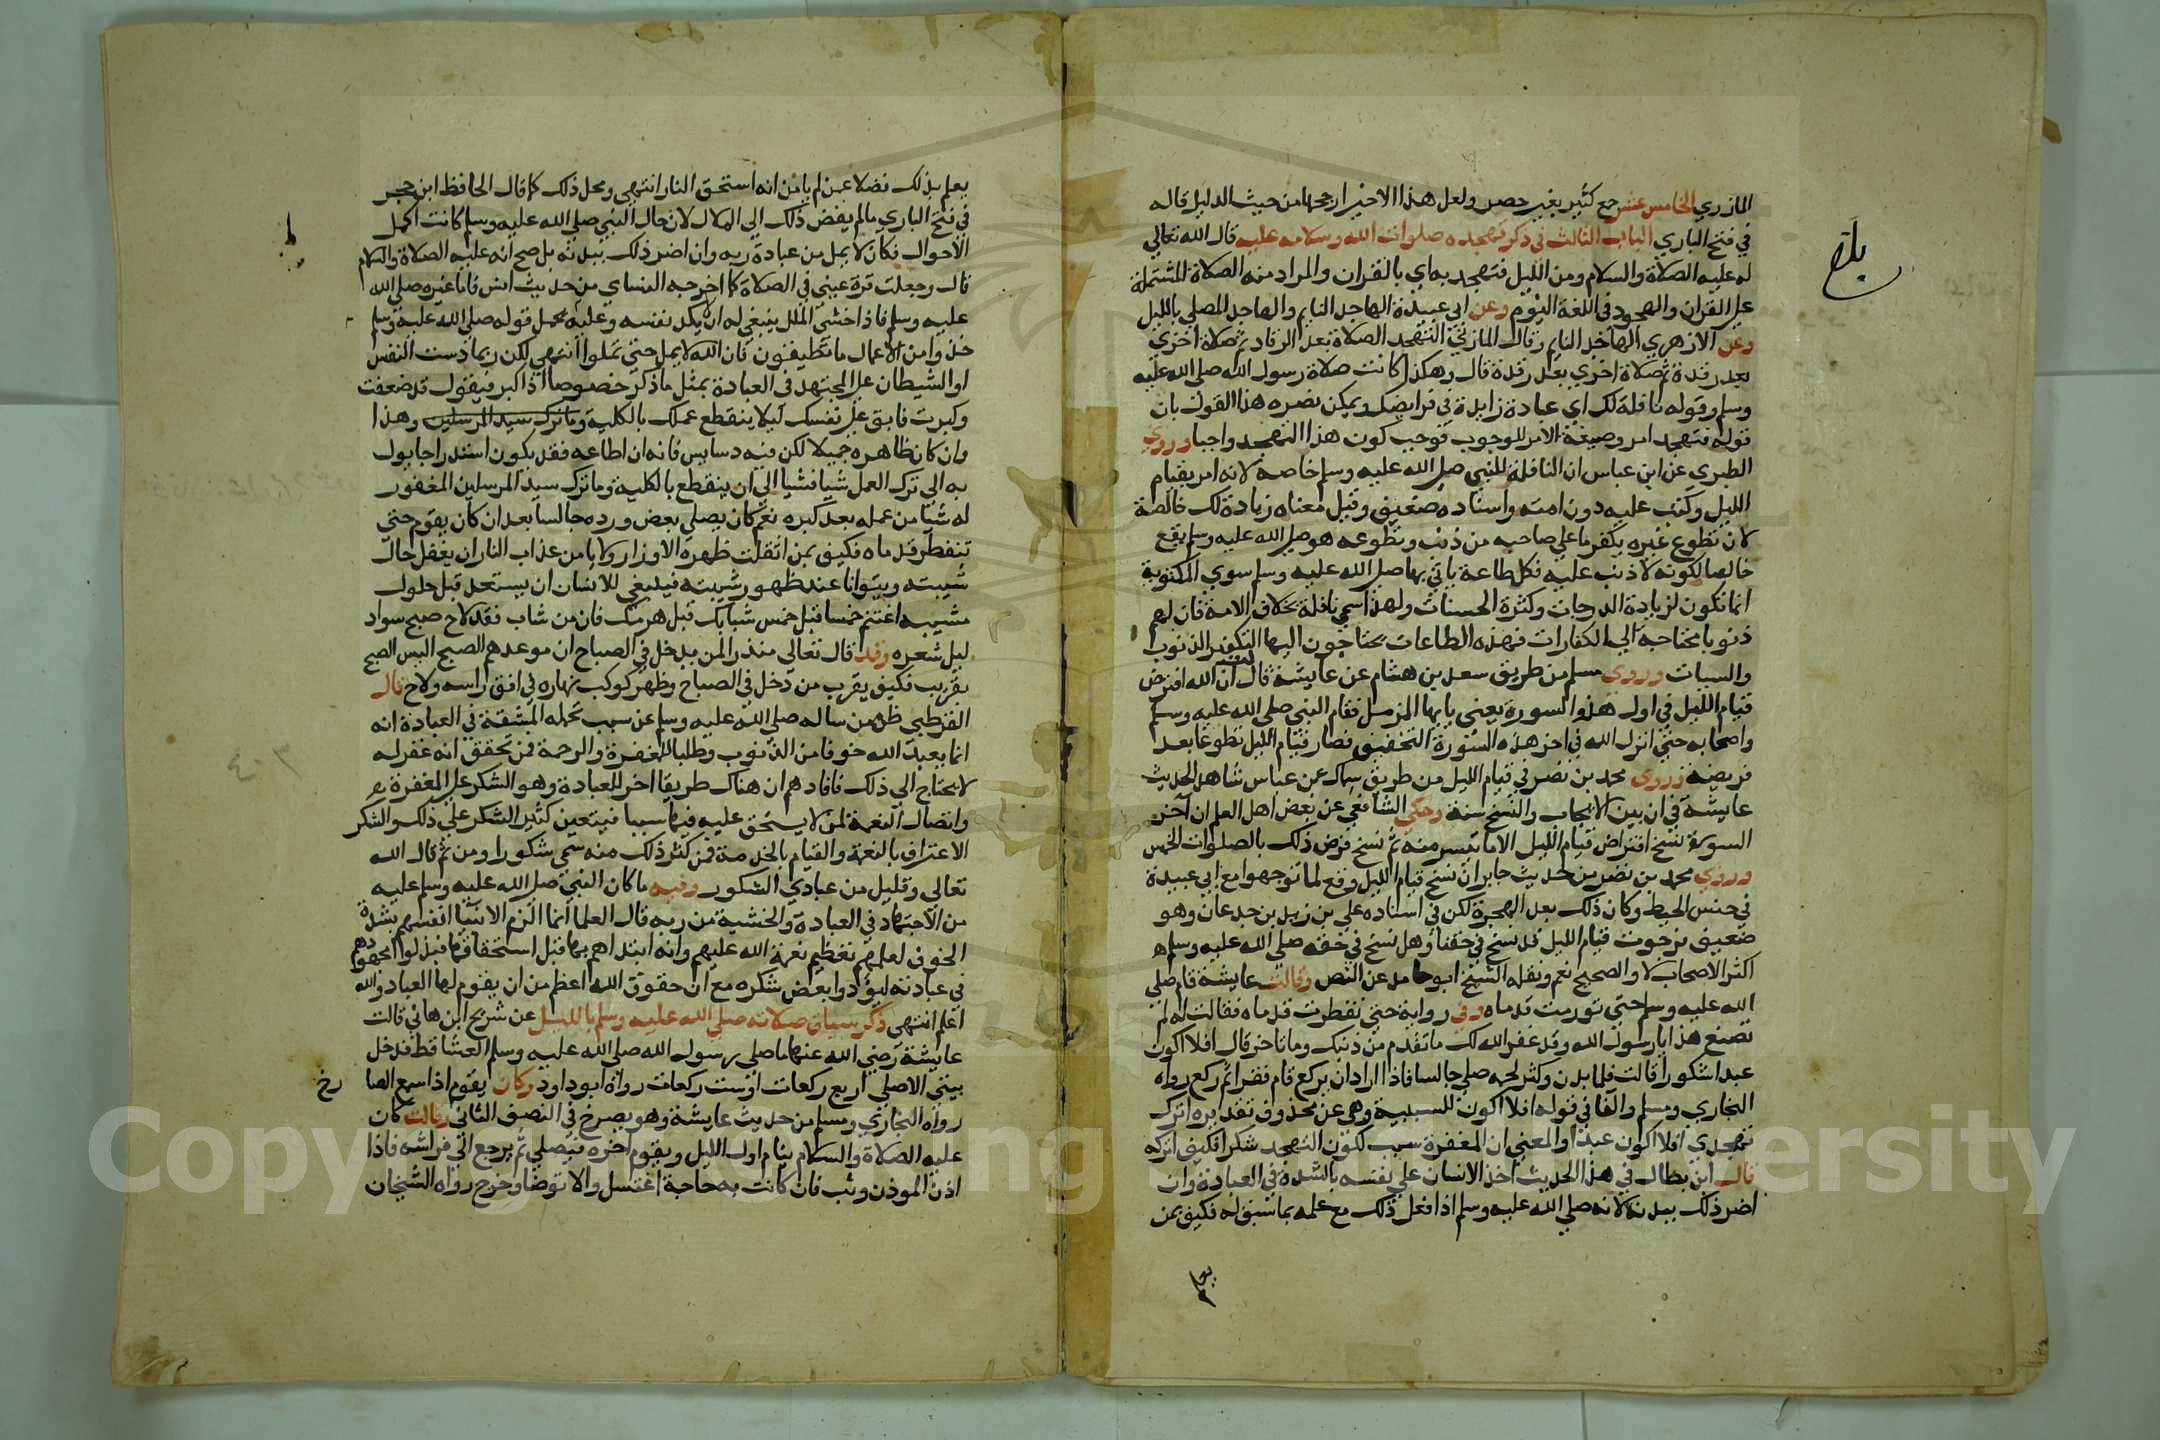 بلغ
المازري الخامس عشر جمع كثير بغير حصر ولعل هذا الاخير ارجحها من حيث الدليل قاله
في فتح الباري الباب الثالث في ذكر تهجده صلوات الله وسلامه عليه قال الله تعالى
له عليه الصلاة والسلام ومن الليل فتهجد به اي بالقران والمراد منه الصلاة المشتملة
على القران والهجود في اللغة النوم وعن ابي عبيدة الهاجد النايم والهاجد المصلي بالليل
وعن الازهري الهاجد النايم وقال المازني التهجد الصلاة بعد الرقاد ثم صلاة اخري
بعد رقدة ثم صلاة اخري بعد رقدة قال وهكذا كانت صلاة رسول الله صلى الله عليه
وسلم وقوله نافلة لك اي عبادة زايدة في فرايضك ويمكن نصره هذا القول بان
قوله فتهجد امر وصيغة الامر للوجوب فوجب كون هذا التهجد واجبا وروي
الطبري عن ابن عباس ان النافلة للنبي صلى الله عليه وسلم خاصة لانه امر بقيام
الليل وكتب عليه دون امته واسناده ضعيف وقيل معناه زيادة لك خالصة
لان تطوع غيره يكفر ما على صاحبه من ذنب وتطوعه هو صلى الله عليه وسلم يقع
خالصا لكونه لا ذنب عليه فكل طاعة ياتي بها صلى الله عليه وسلم سوي المكتوبة
انما تكون لزيادة الدرجات وكثرة الحسنات ولهذا سمي نافلة بخلاف الامة فان لهم
ذنوبا محتاجة الى الكفارات فهذه الطاعات يحتاجون اليها لتكفير الذنوب
والسيات وروي مسلم من طريق سعد بن هشام عن عايشة قالت ان الله افترض
قيام الليل في اول هذه السورة يعني يايها المزمل فقام النبي صلى الله عليه وسلم
واصحابه حتى انزل الله في اخر هذه السورة التخفيف فصار قيام الليل تطوعا بعد
فريضة وروى محمد بن نصر في قيام الليل من طريق سماك عن عباس شاهد الحديث
عايشة في ان بين الايجاب والنسخ سنة وحكي الشافعي عن بعض اهل العلم ان آخر
السورة نسخ افتراض قيام الليل الا ما تيسر منه ثم نسخ فرض ذلك بالصلوات الخمس
وروي محمد بن نصر من حديث جابر ان نسخ قيام الليل وقع لما توجهوا مع ابي عبيدة
في جيش الخبط وكان ذلك بعد الهجرة لكن في اسناده علي بن زيد بن جدعان وهو
ضعيف فوجوب قيام الليل قد نسخ في حقنا وهل نسخ في حقه صلى الله عليه وسلم
اكثر الاصحاب لا والصحيح نعم ونقله الشيخ ابو حامد عن النص وقالت عايشة قام صلى
الله عليه وسلم حتى تورمت قدماه وفي رواية حتى تفطرت قدماه فقالت له لم
تصنع هذا يا رسول الله وقد غفر الله لك ما تقدم من ذنبك وما تاخر قال افلا اكون
عبدا شكورا قالت فلما بدن وكثر لحمه صلى جالسا فاذا اراد ان يركع قام فقرا ثم ركع رواه
البخاري ومسلم والفا في قوله افلا اكون للسببية وهي عن محذوف تقديره اترك
تهجدي افلا اكون عبدا والمعني ان المغفرة سبب لكون التهجد شكرا فكيف اتركه
قال ابن بطال في هذا الحديث اخذ الانسان على نفسه بالشدة في العبادة وان
اضر ذلك ببدنه لانه صلى الله عليه وسلم اذا فعل ذلك مع علمه بما سبق له فكيف بمن
يعلم
يعلم بذلك فضلا عمن لم يامن انه استحق النار انتهى ومحل ذلك كما قال الحافظ ابن حجر
في فتح الباري ما لم يفض ذلك الى الملال لان حال النبي صلى الله عليه وسلم كانت اكمل
الاحوال فكان لا يمل من عبادة ربه وان اضر ذلك ببدنه بل صح انه عليه الصلاة والسلام
قال وجعلت قرة عيني في الصلاة كما اخرجه النساي من حديث انس فاما غيره صلى الله
عليه وسلم فاذا خشي الملل ينبغي له ان لا يكد نفسه وعليه يحمل قوله صلى الله عليه وسلم
خذوا من الاعمال ما تطيقون فان الله لا يمل حتى تملوا انتهى لكن ربما دست النفس
او الشيطان على المجتهد في العبادة بمثل ما ذكر خصوصا اذا كبر فيقول قد ضعفت
وكبرت فابق على نفسك ليلا ينقطع عملك بالكلية وما ترك سيد المرسلين وهذا
وان كان ظاهره جميلا لكن فيه دسايس فانه ان اطاعه فقد يكون استدراجا يول
به الى ترك العمل شيا فشيا الى ان ينقطع بالكلية وما ترك سيد المرسلين المغفور
له شيا من عمله بعد كبره نعم كان يصلي بعض ورده جالسا بعد ان كان يقوم حتى
تنفطر قدماه فكيف بمن اثقلت ظهره الاوزار ولا يامن عذاب النار ان يغفل حال
شيبته ويتوانا عند ظهور شيبته فينبغي للانسان ان يستعد قبل حلول
مشيبه اغتنم خمسا قبل خمس شبابك قبل هرمك فان من شاب فقد لاح صبح سواد
ليل شعره وقد قال تعالى منذرا لمن يدخل في الصباح ان موعدهم الصبح اليس الصبح
بقريب فكيف يقرب من دخل في الصباح وظهر كوكب نهاره في افق راسه ولاح قال
القرطبي ظن من ساله صلى الله عليه وسلم عن سبب تحمله المشقة في العبادة انه
انما يعبد الله خوفا من الذنوب وطلبا للمغفرة والرحمة فمن تحقق انه غفر له
لا يحتاج الى ذلك فافادهم ان هناك طريقا اخر للعبادة وهو الشكر على المغفرة
وايصال النعمة لمن لا يستحق عليه فيها سببا فيتعين كثير الشكر على ذلك والشكر
الاعتراف بالنعمة والقيام بالخدمة فمن كثر ذلك منه سمي شكورا ومن ثم قال الله
تعالى وقليل من عبادي الشكور وفيه ما كان النبي صلى الله عليه وسلم عليه
من الاجتهاد في العبادة والخشية من ربه قال العلما انما الزم الانبيا انفسهم بشدة
الخوف لعلمهم تعظيم نعمة الله عليهم وانه ابتداهم بها قبل استحقاقها فبذلوا مجهودهم
في عبادته ليؤدوا بعض شكره مع ان حقوق الله اعظم من ان يقوم لها العباد والله
اعلم انتهى ذكر سياق صلاته صلى الله عليه وسلم بالليل عن شريح ابن هاني قالت
عايشة رضي الله عنها ما صلى رسول الله صلى الله عليه وسلم العشا قط فدخل
بيتي الا صلى اربع ركعات او ست ركعات رواه ابو داود وكان يقوم اذا سمع الصا
رخ
رواه البخاري ومسلم من حديث عايشة وهو يصرخ في النصف الثاني وقالت كان
عليه الصلاة والسلام ينام اول الليل ويقوم اخره فيصلي ثم يرجع الى فراشه فاذا
اذن الموذن وثب فان كانت به حاجة اغتسل والا توضا وخرج رواه الشيخان